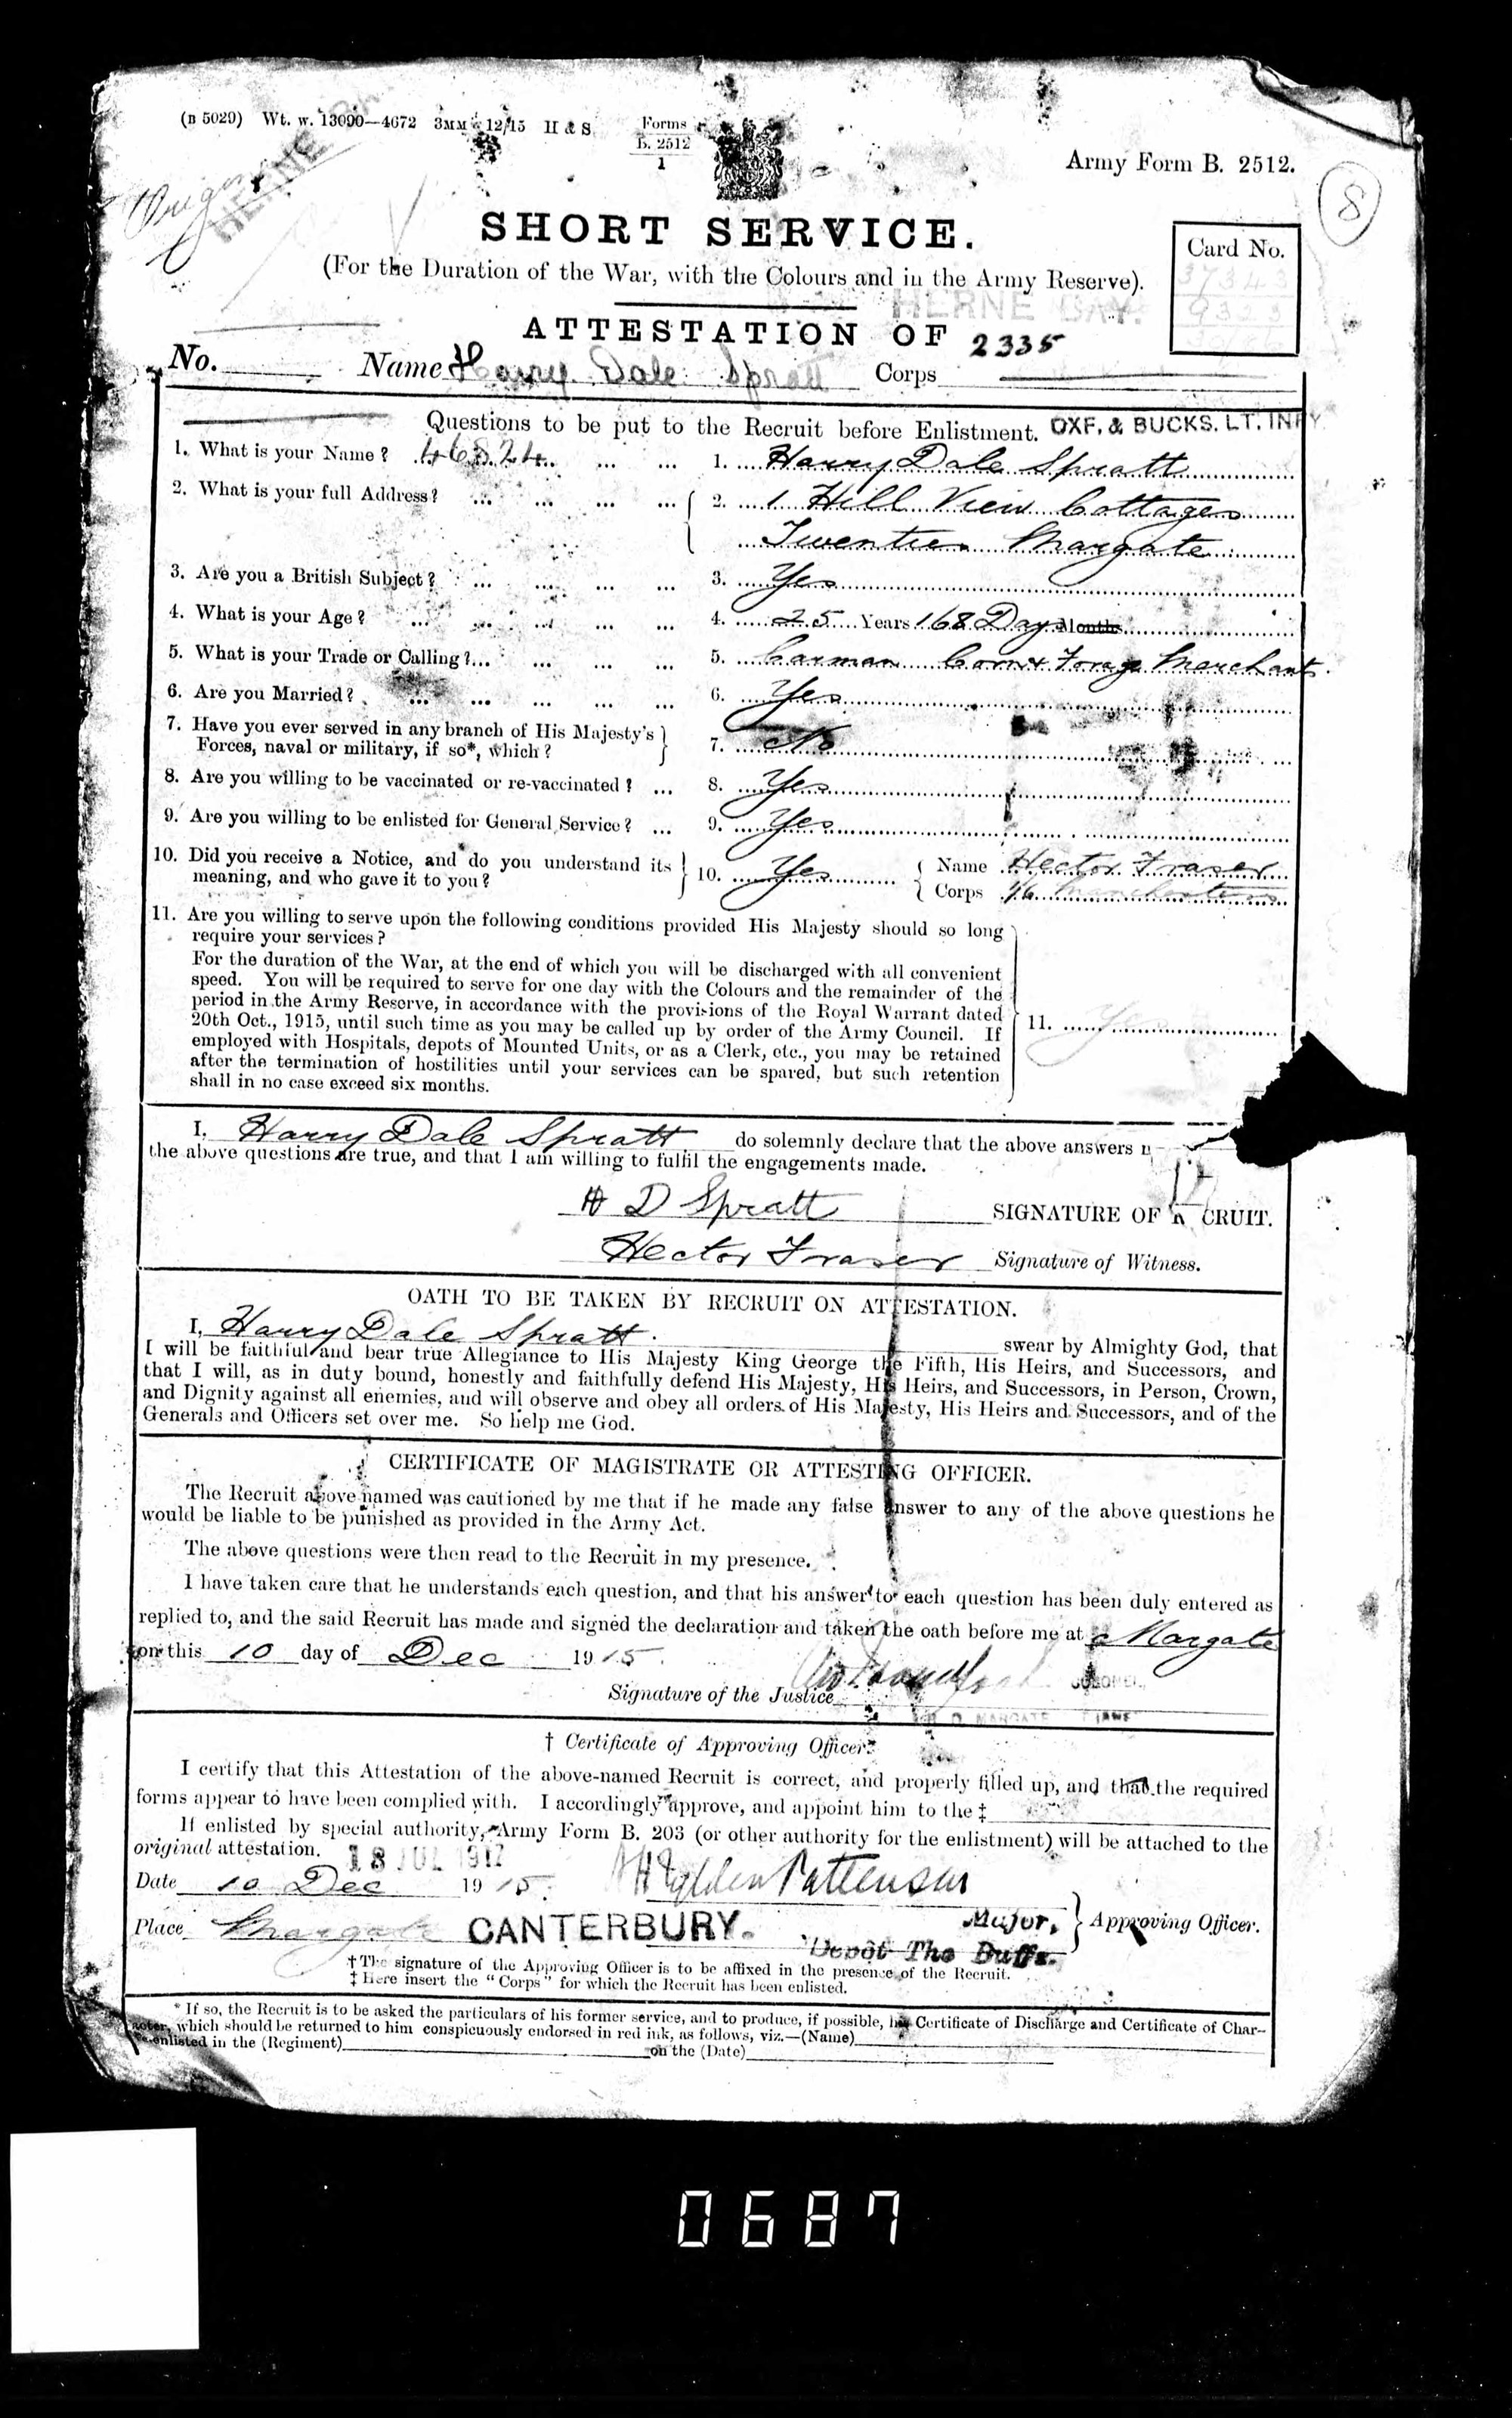 (B 5029) Wt. w. 13090—4672 3MM 12/15 H & S Forms
B. 2512
1
Army Form B. 2512.
8
HERNE BAY
SHORT SERVICE.
Card No.
37343
(For the Duration of the War, with the Colours and in the Army Reserve).
9323
HERNE BAY.
ATTESTATION OF
2335
No. Name Harry Dale Spratt Corps
Questions to be put to the Recruit before Enlistment. OXF. & BUCKS. LT. INFY
1. What is your Name? 46824 ... ... 1. Harry Dale Spratt
2. What is your full Address? ... ... ... ... 2. 1 Hill View Cottages
Twenties Margate
3. Are you a British Subject? ... ... ... ... 3. Yes
4. What is your Age? ... ... ... ... ... 4. 25 Years 168 Days Months
5. What is your Trade or Calling?... ... ... ... 5. Carman Corn & Forage Merchants.
6. Are you Married? ... ... ... ... ... 6. Yes
7. Have you ever served in any branch of His Majesty's
Forces, naval or military, if so*, which? 7. No
8. Are you willing to be vaccinated or re-vaccinated? ... 8. Yes
9. Are you willing to be enlisted for General Service? ... 9. Yes
10. Did you receive a Notice, and do you understand its
meaning, and who gave it to you? 10. Yes Name Hector Fraser
Corps Manchesters
11. Are you willing to serve upon the following conditions provided His Majesty should so long
require your services?
For the duration of the War, at the end of which you will be discharged with all convenient
speed. You will be required to serve for one day with the Colours and the remainder of the
period in the Army Reserve, in accordance with the provisions of the Royal Warrant dated
20th Oct., 1915, until such time as you may be called up by order of the Army Council. If
employed with Hospitals, depots of Mounted Units, or as a Clerk, etc., you may be retained
after the termination of hostilities until your services can be spared, but such retention
shall in no case exceed six months.
11. Yes
I, Harry Dale Spratt do solemnly declare that the above answers
the above questions are true, and that I am willing to fulfil the engagements made.
H D Spratt SIGNATURE OF R CRUIT.
Hector Fraser Signature of Witness.
OATH TO BE TAKEN BY RECRUIT ON ATTESTATION.
I, Harry Dale Spratt. swear by Almighty God, that
I will be faithful and bear true Allegiance to His Majesty King George the Fifth, His Heirs, and Successors, and
that I will, as in duty bound, honestly and faithfully defend His Majesty, His Heirs, and Successors, in Person, Crown,
and Dignity against all enemies, and will observe and obey all orders of His Majesty, His Heirs and Successors, and of the
Generals and Officers set over me. So help me God.
CERTIFICATE OF MAGISTRATE OR ATTESTING OFFICER.
The Recruit above named was cautioned by me that if he made any false answer to any of the above questions he
would be liable to be punished as provided in the Army Act.
The above questions were then read to the Recruit in my presence.
I have taken care that he understands each question, and that his answer to each question has been duly entered as
replied to, and the said Recruit has made and signed the declaration and taken the oath before me at Margate
on this 10 day of Dec 1915.
COLONEL,
Signature of the Justice
MARGATE
† Certificate of Approving Officer.
I certify that this Attestation of the above-named Recruit is correct, and properly filled up, and that the required
forms appear to have been complied with. I accordingly approve, and appoint him to the ‡
If enlisted by special authority, Army Form B. 203 (or other authority for the enlistment) will be attached to the
original attestation. 18 JUL 1917
Date 10 Dec 1915. Pattenson
Major,
Place Margate CANTERBURY. Approving Officer.
Depôt The Buffs.
† The signature of the Approving Officer is to be affixed in the presence of the Recruit.
‡ Here insert the "Corps" for which the Recruit has been enlisted.
* If so, the Recruit is to be asked the particulars of his former service, and to produce, if possible, his Certificate of Discharge and Certificate of Char-
acter, which should be returned to him conspicuously endorsed in red ink, as follows, viz.—(Name)
re-enlisted in the (Regiment) on the (Date)
0687